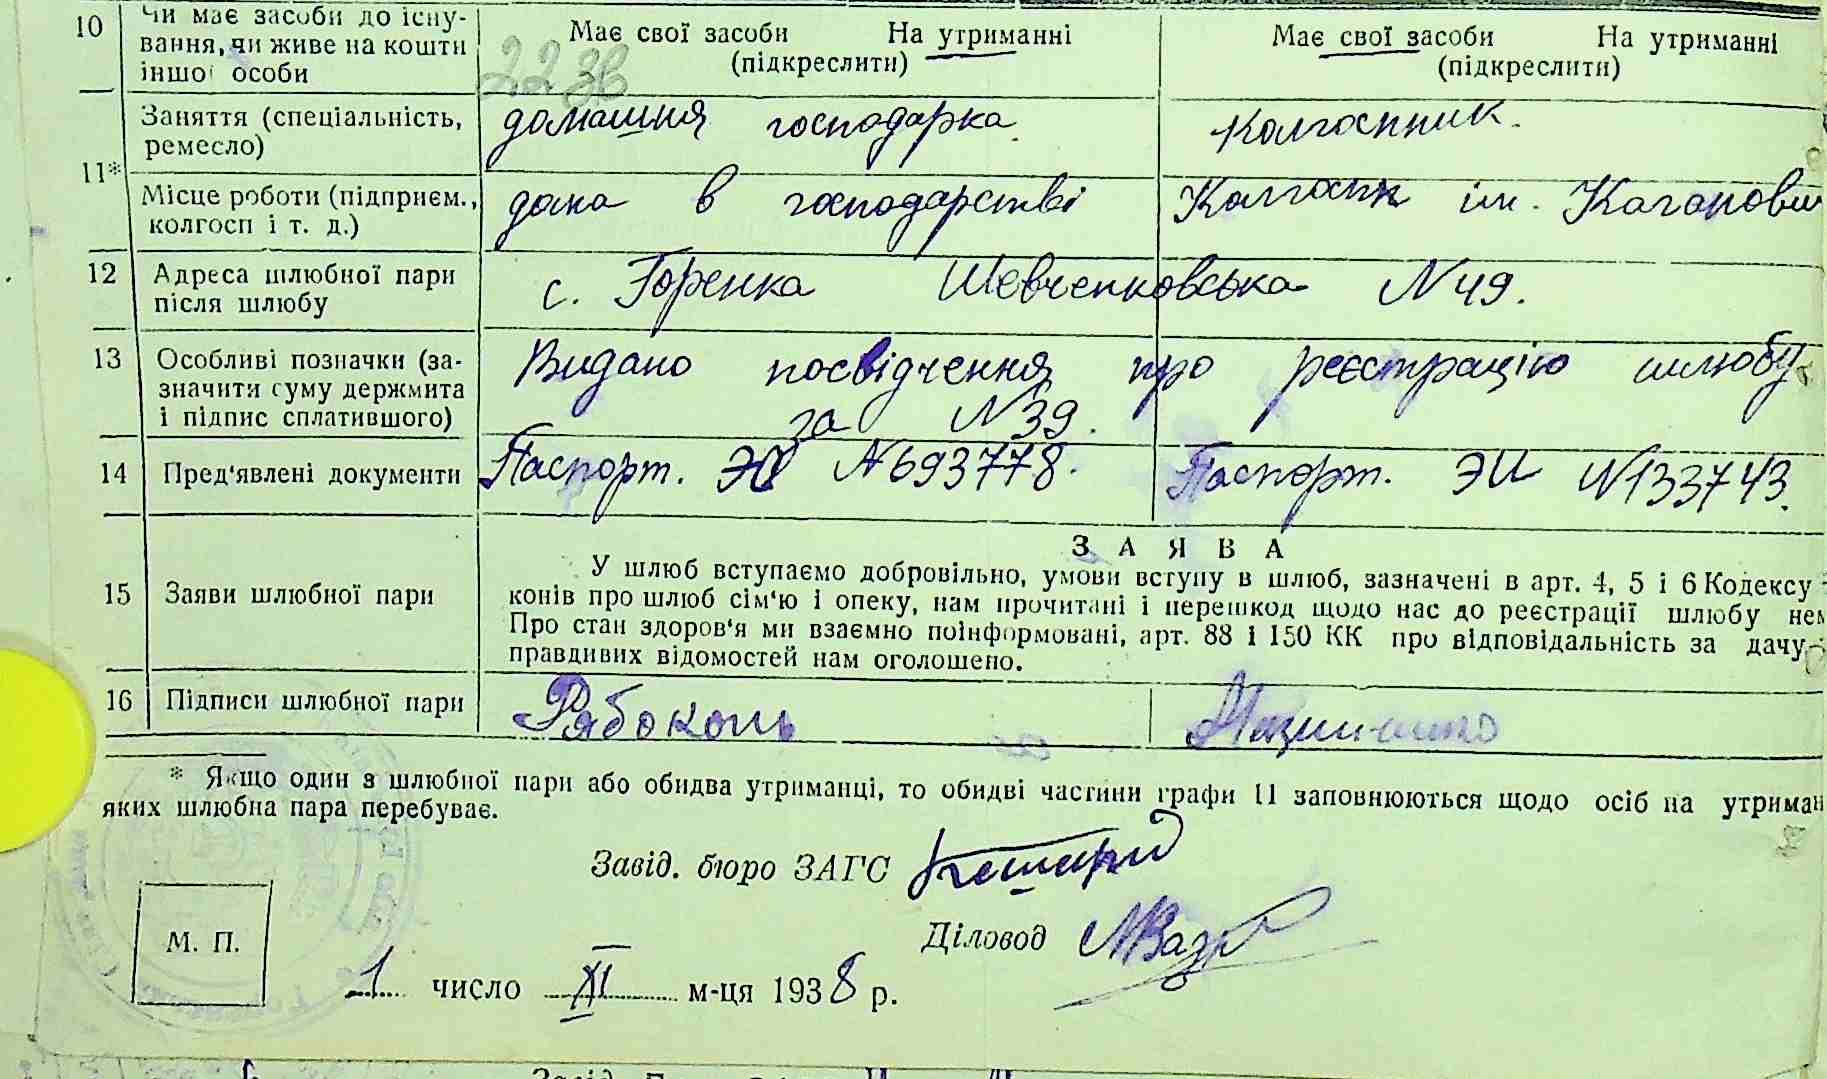 10 Чи має засоби до існу-
вання, чи живе на кошти
іншої особи
Має свої засоби На утриманні
(підкреслити)
Має свої засоби На утриманні
(підкреслити)
223в
11* Заняття (спеціальність,
ремесло)
домашня господарка
Колгоспник.
Місце роботи (підприєм.,
колгосп і т. д.)
дома в господарстві
Колгосп ім. Каганови
12 Адреса шлюбної пари
після шлюбу
с. Горенка Шевченковська N49.
13 Особливі позначки (за-
значити суму держмита
і підпис сплатившого)
Видано посвідчення про реєстрацію шлюбу
за N39.
14 Пред'явлені документи
Паспорт. N693778.
Паспорт. ЭИ N133743.
15 Заяви шлюбної пари
ЗАЯВА
У шлюб вступаємо добровільно, умови вступу в шлюб, зазначені в арт. 4, 5 і 6 Кодексу
конів про шлюб сім'ю і опеку, нам прочитані і перешкод щодо нас до реєстрації шлюбу нем
Про стан здоров'я ми взаємно поінформовані, арт. 88 і 150 КК про відповідальність за дачу
правдивих відомостей нам оголошено.
16 Підписи шлюбної пари
Рябоконь
* Якщо один з шлюбної пари або обидва утриманці, то обидві частини графи 11 заповнюються щодо осіб на утриман
яких шлюбна пара перебуває.
Завід. бюро ЗАГС
Діловод
М. П.
1 число XI м-ця 1938 р.